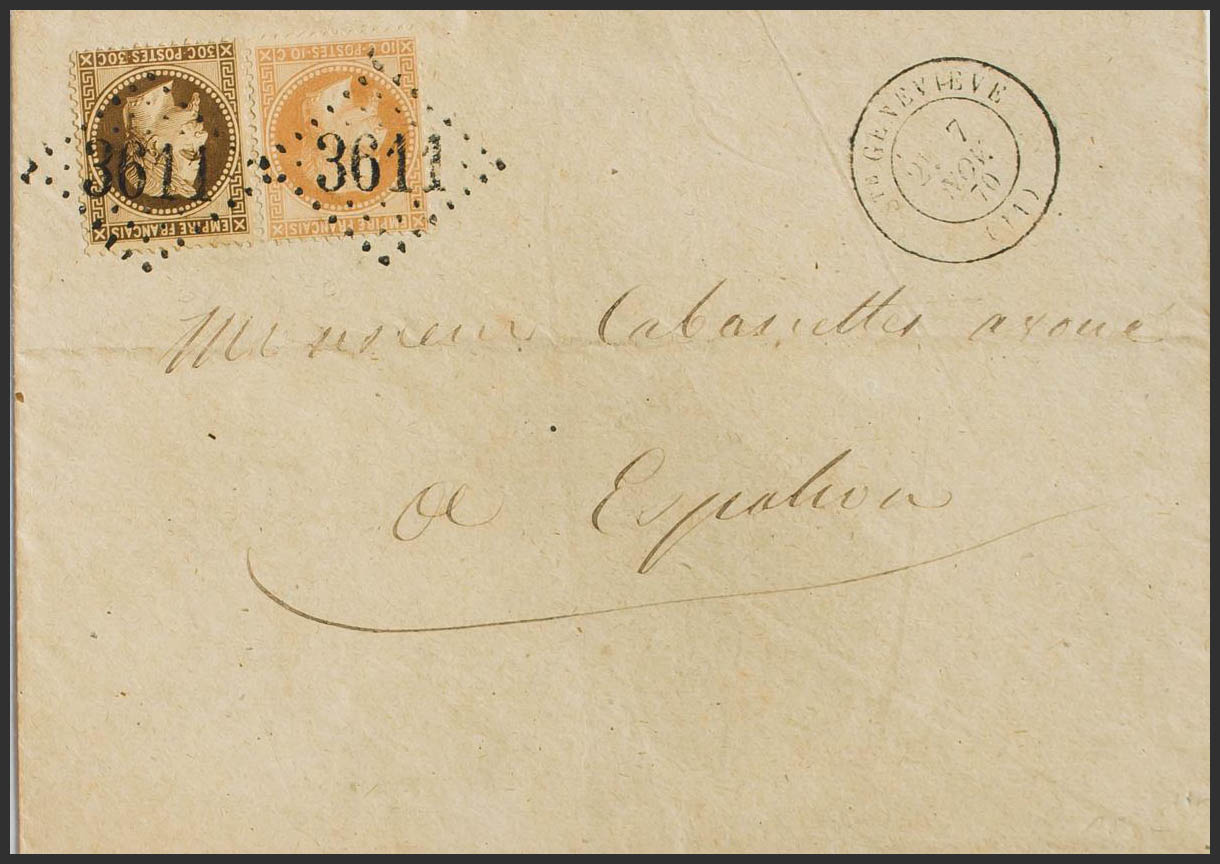 30C·POSTES·30C
EMPIRE FRANÇAIS
10 C·POSTES·10 C
EMPIRE FRANÇAIS
3611
3611
STE GENEVIEVE
7
2E
NOV.
70
(11)
Monsieur Cabassettes avoué
a Espalion